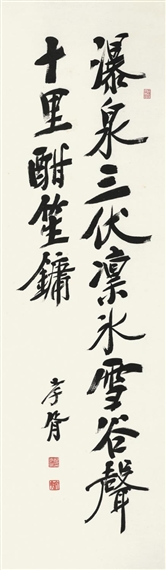 瀑泉三伏凛冰雪谷聲
十里酣笙鏞
孝胥